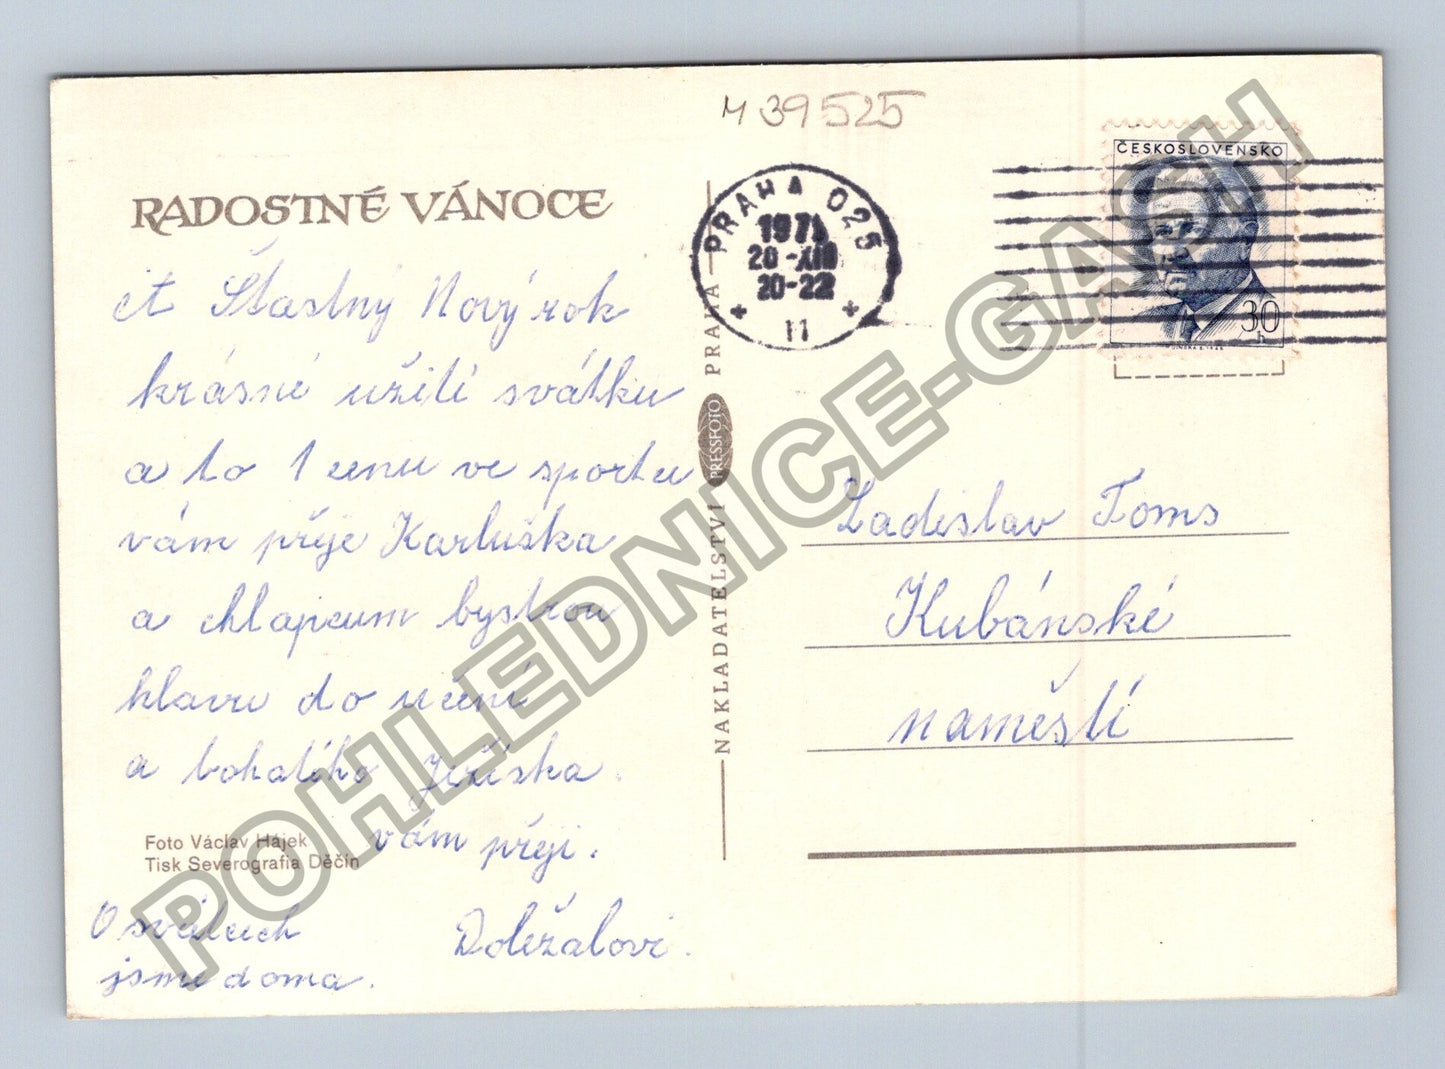 M 39525
RADOSTNÉ VÁNOCE
Šťastný Nový rok
krásné užití svátku
a to 1 cenu ve sportu
vám přeje Karluška
a chlapcum bystrou
hlavu do učení
a bohatého Ježíška.
vám přeji.
Doležalovi.
O svátcích
jsme doma.
Foto Václav Hájek
Tisk Severografia Děčín
NAKLADATELSTVÍ PRESSFOTO PRAHA
PRAHA 025
1971
20-XII
20-22
11
ČESKOSLOVENSKO
30
h
Ladislav Toms
Kubánské
naměstí
POHLEDNICE-GASH